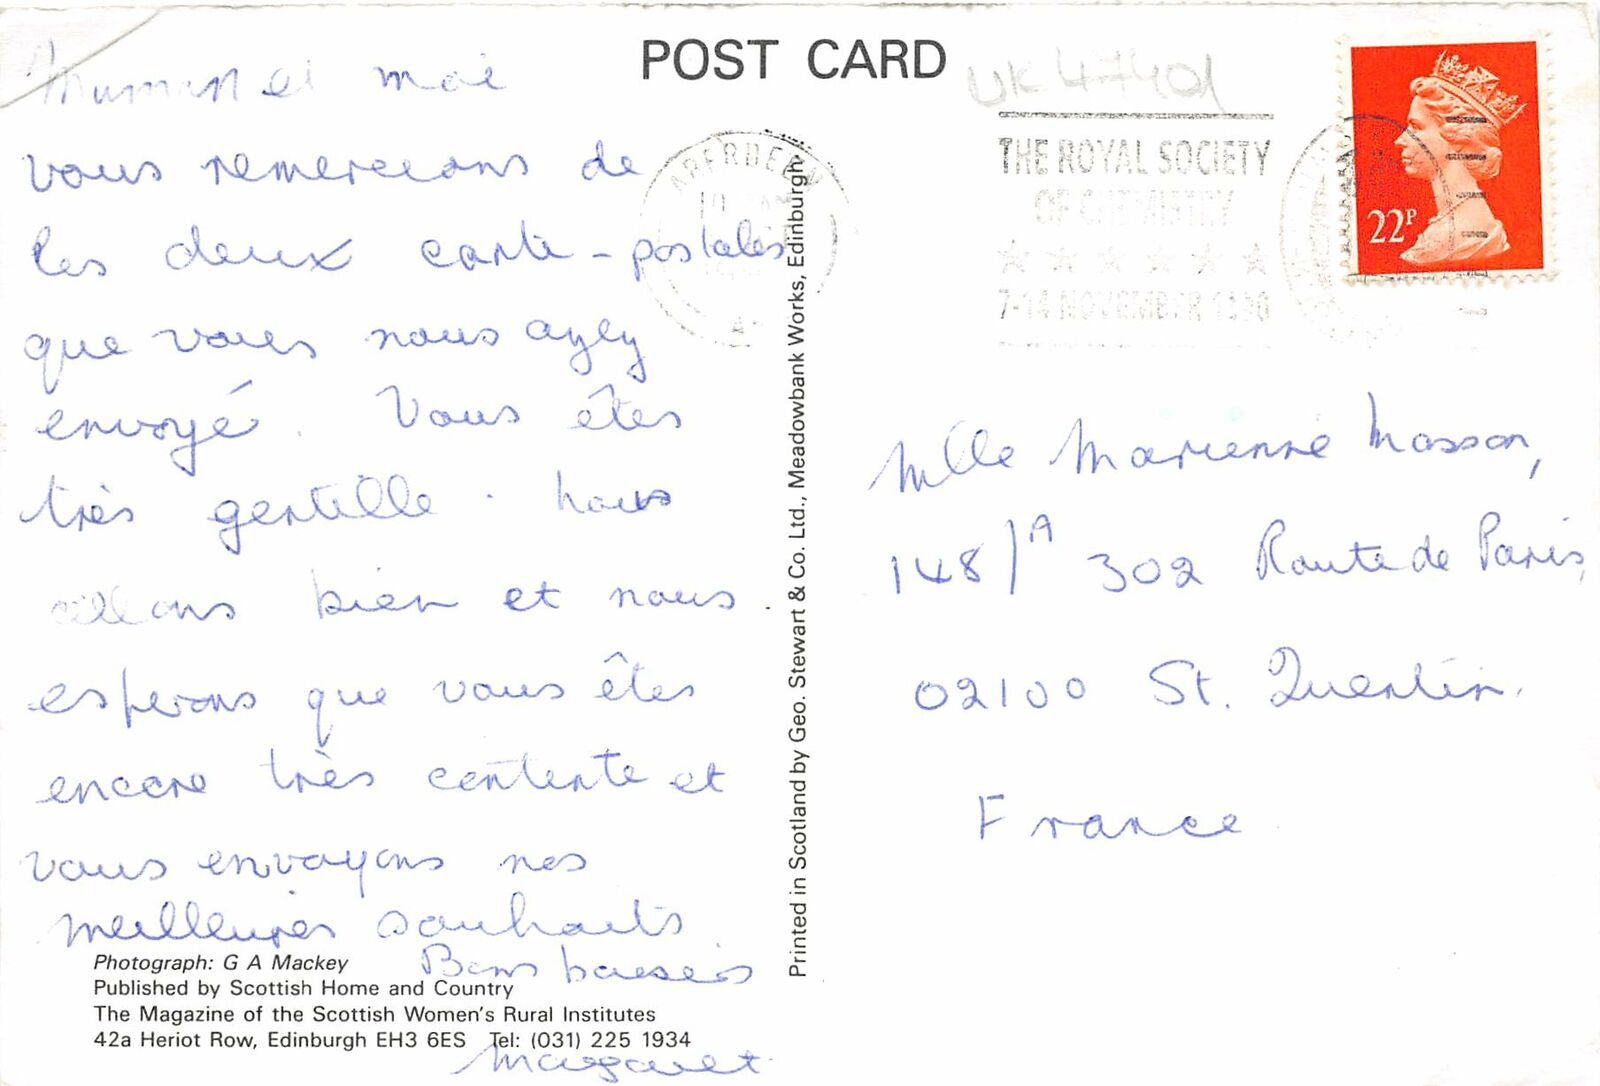 POST CARD
UK 4740d
Muman et moi
vous remercions de
les deux carte-postales
que vous nous ayez
envoyé. Vous êtes
très gentille. Nous
allons bien et nous
esperons que vous êtes
encore très contente et
vous envoyons nos
meilleures souhaits.
Bons baisers
Margaret
Photograph: G A Mackey
Published by Scottish Home and Country
The Magazine of the Scottish Women's Rural Institutes
42a Heriot Row, Edinburgh EH3 6ES Tel: (031) 225 1934
Printed in Scotland by Geo. Stewart & Co. Ltd., Meadowbank Works, Edinburgh
ABERDEEN
THE ROYAL SOCIETY
OF CHEMISTRY
7-14 NOVEMBER 1990
22P
Mlle Marienne Masson,
148/A 302 Route de Paris,
02100 St. Quentin.
France